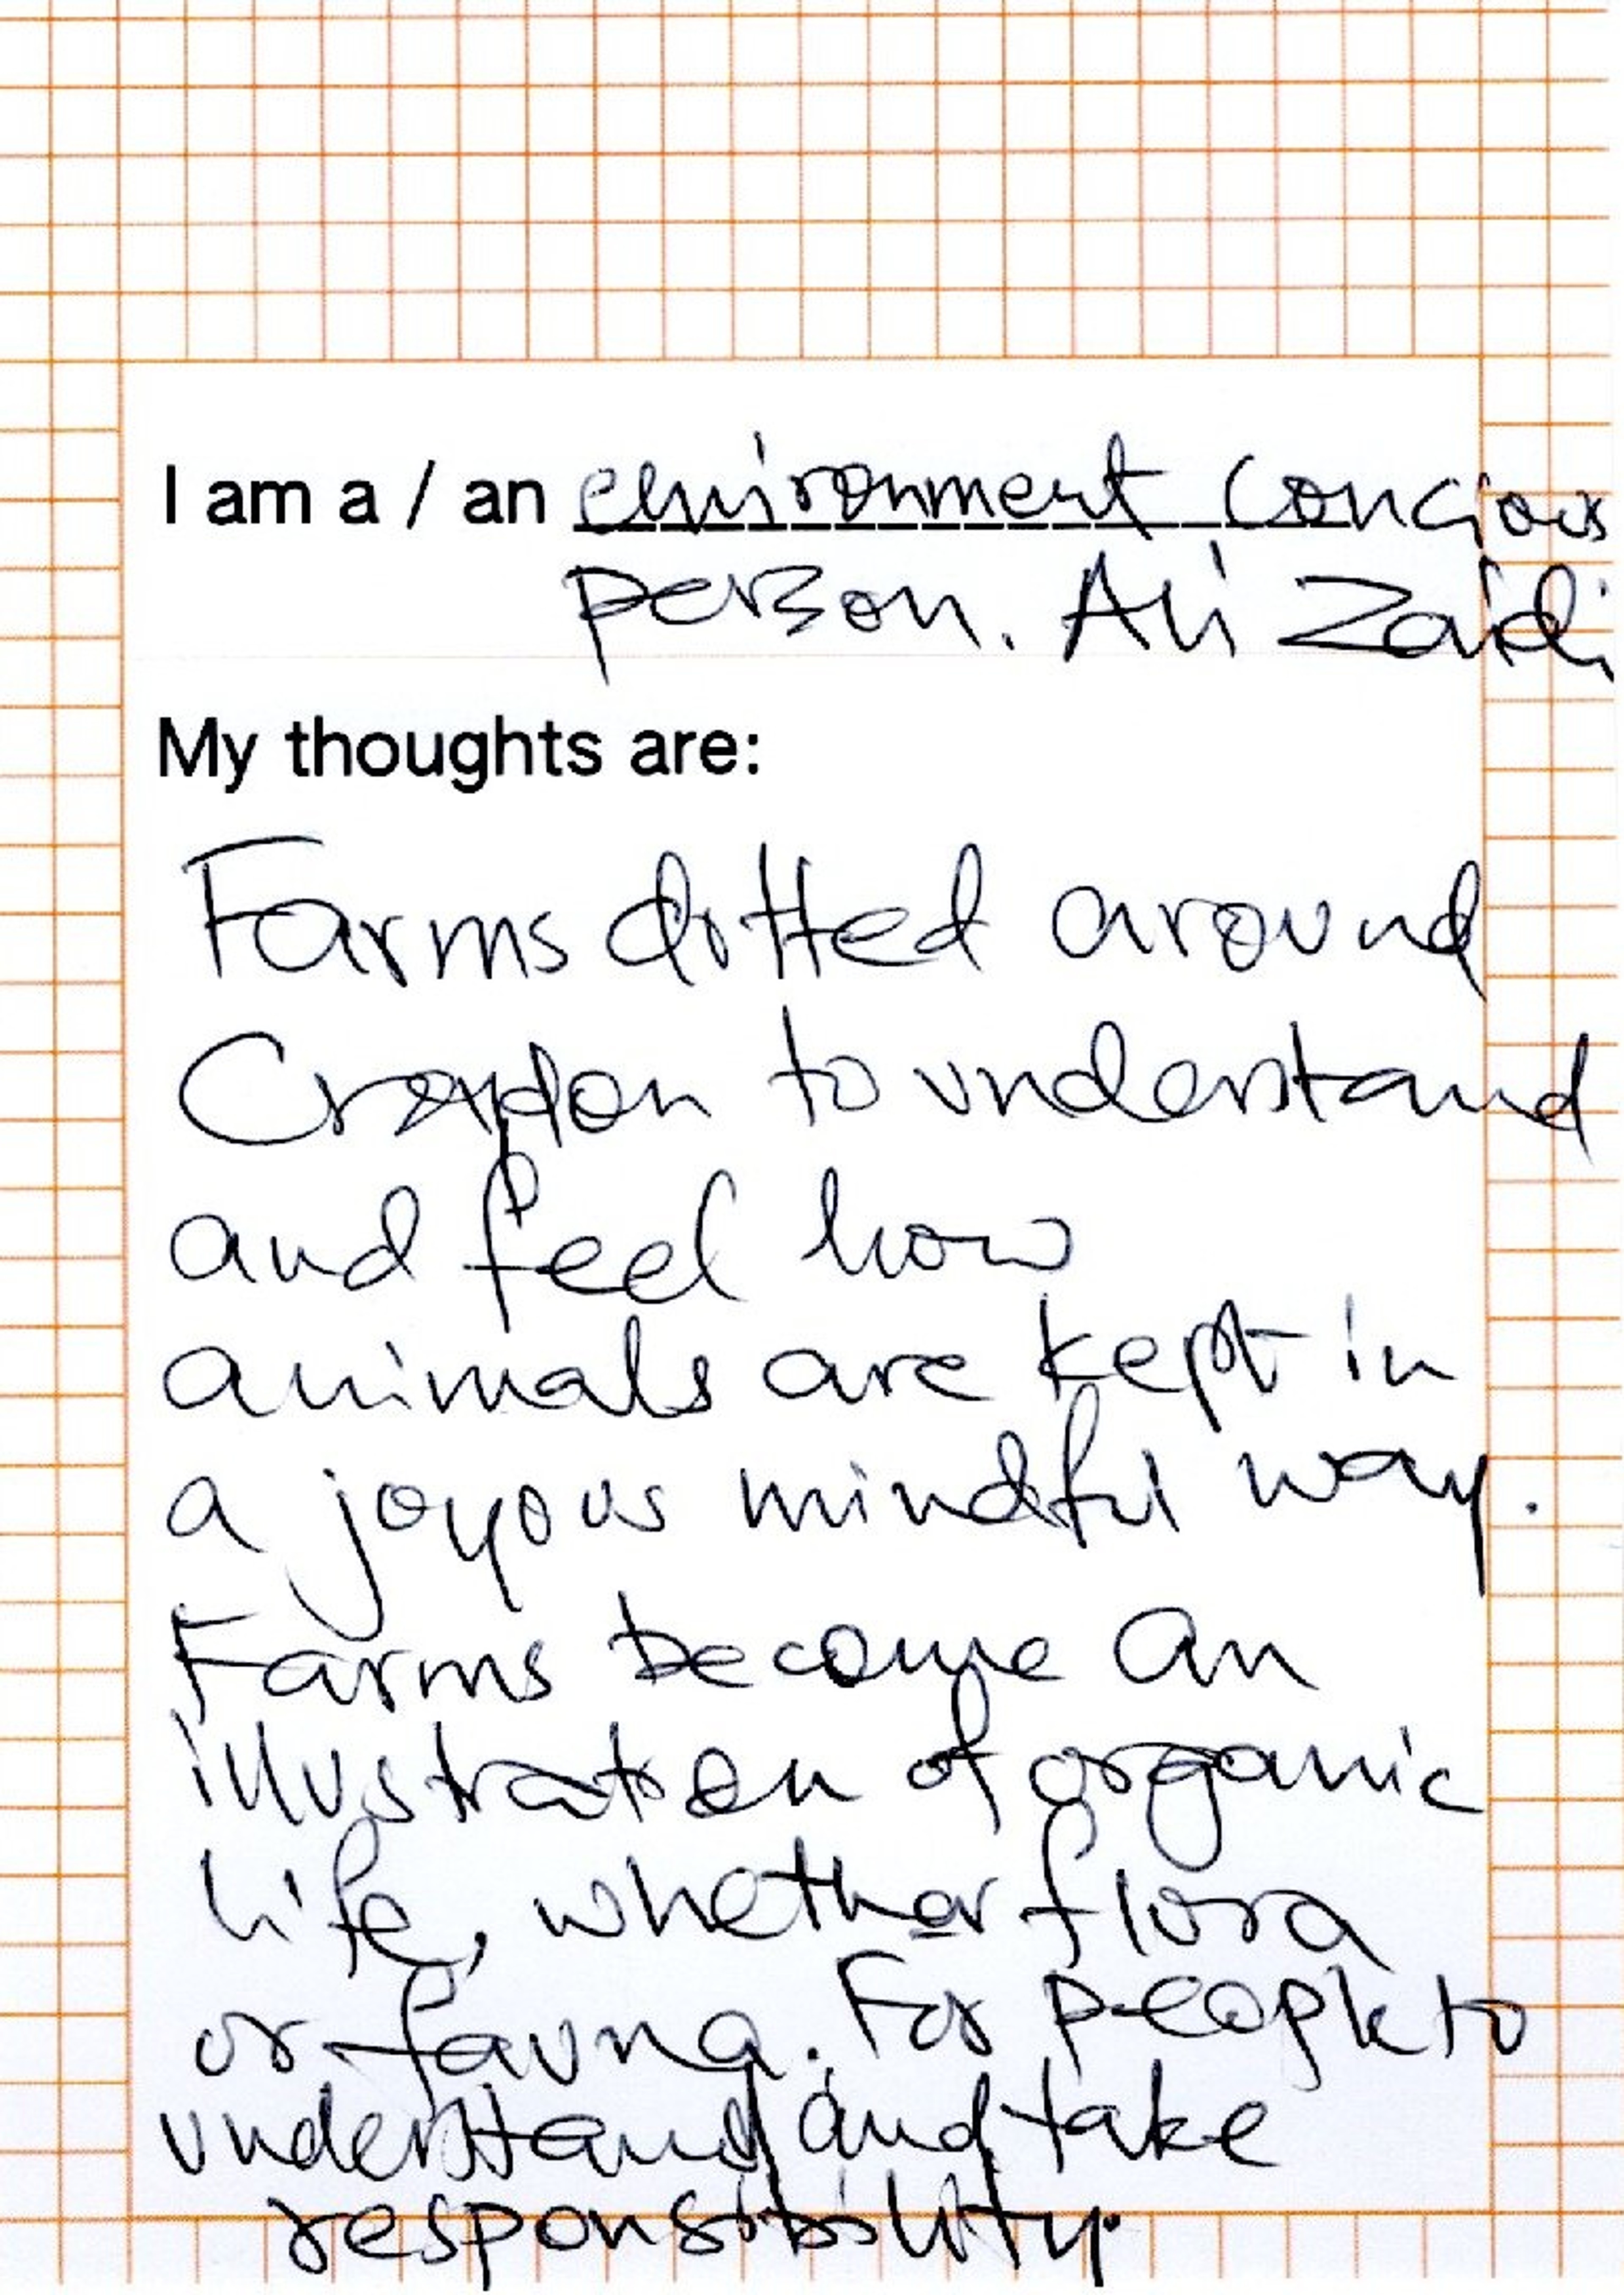 I am a / an environment concious
person. Ali Zaidi
My thoughts are:
Farms dotted around
Croydon to understand
and feel how
animals are kept in
a joyous mindful way.
Farms become an
illustration of organic
life, whether flora
or fauna. For people to
understand and take
responsibility.